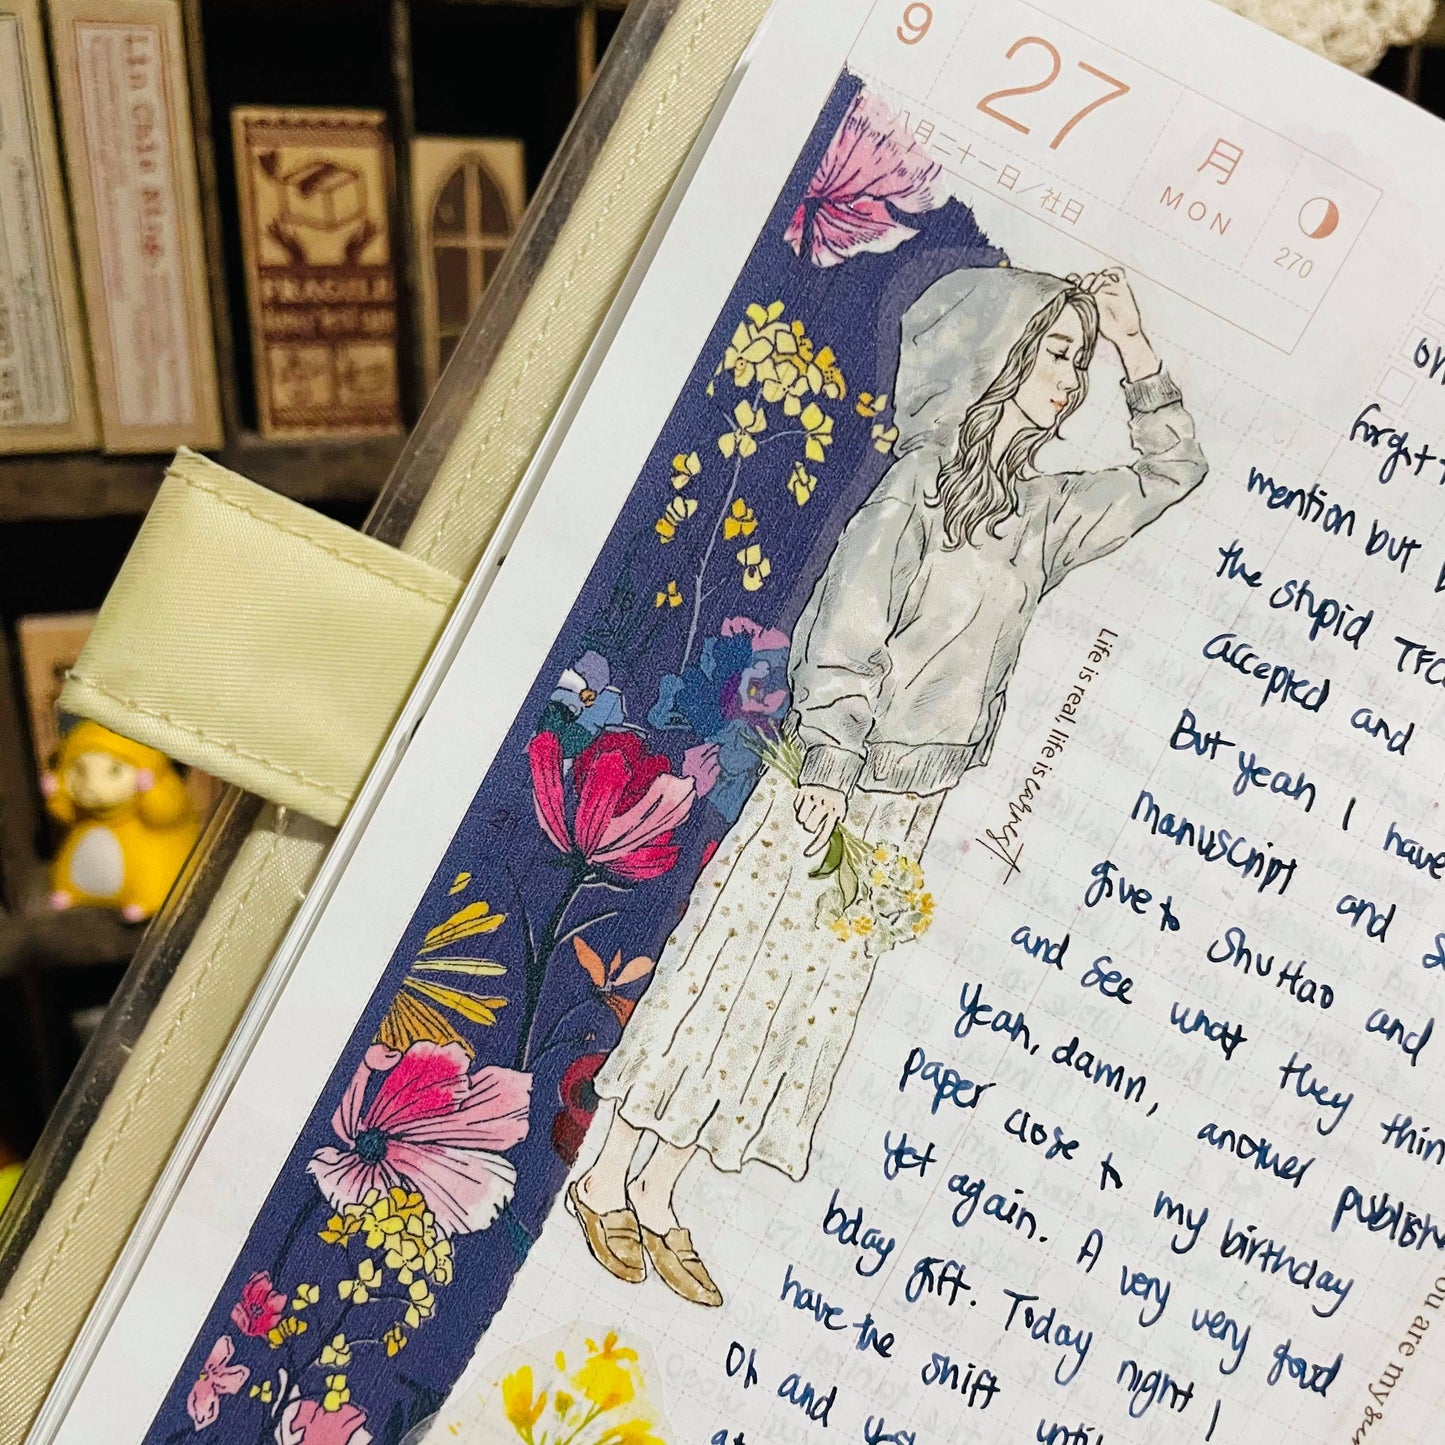 9
27
月
MON
270
八月二十一日／社日
FRAGILE
Life is real, life is earnest
forght
mention but
the stupid TFC
accepted and
But yeah I have
manuscript and
give to ShuHao and
and see what they thin
Yeah, damn, another publish
paper close to my birthday
yet again. A very very good
bday gift. Today night I
have the shift until
Oh and yes
ou are my